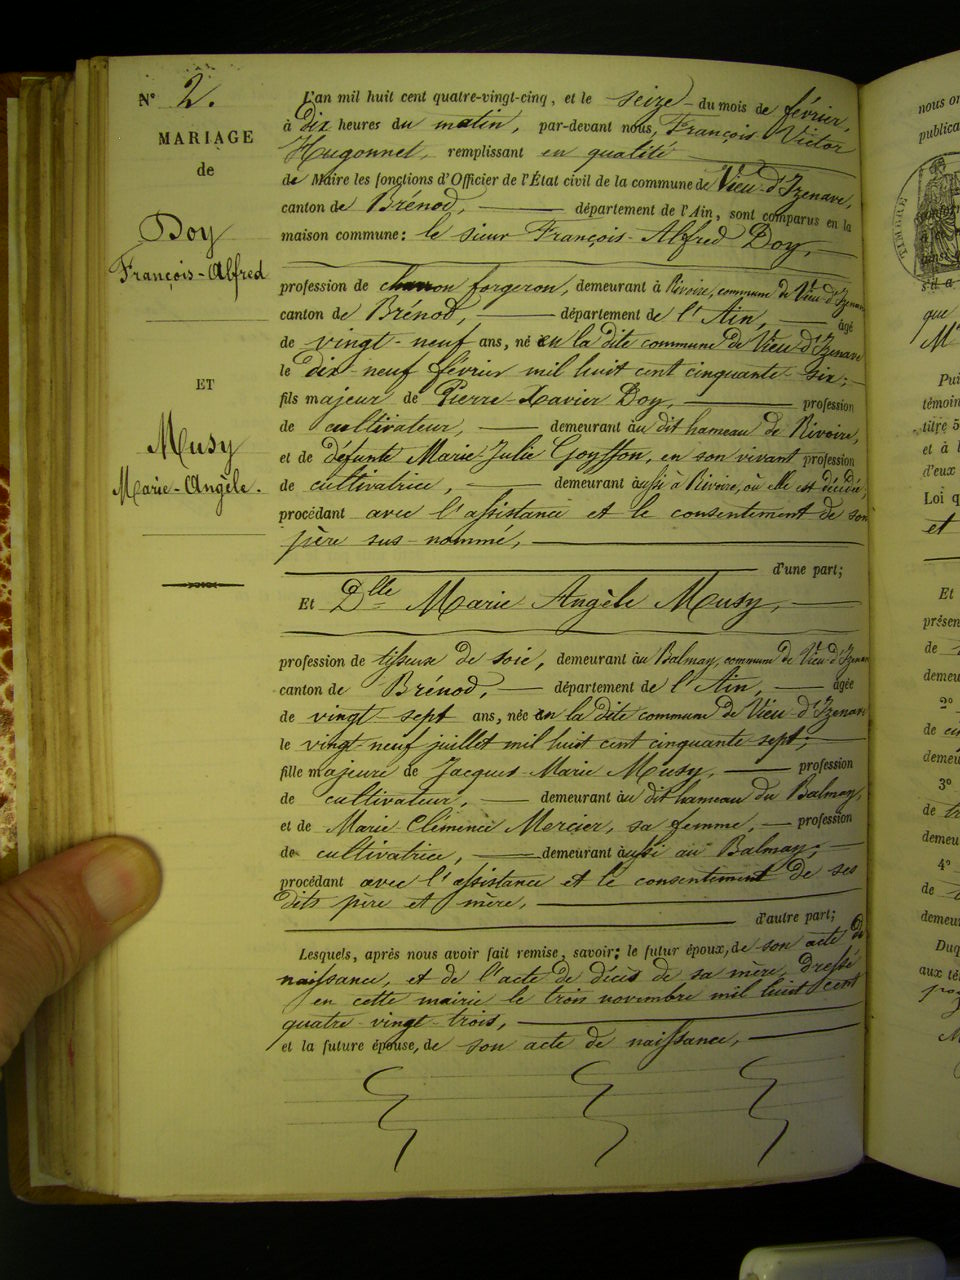 N° 2.
MARIAGE
de
Doy
François-Alfred
ET
Musy
Marie-Angèle.
L'an mil huit cent quatre-vingt-cinq, et le seize du mois de février,
à dix heures du matin, par-devant nous, François Victor
Hugonnet, remplissant en qualité
de Maire les fonctions d'Officier de l'État civil de la commune de Vieu-d'Izenave,
canton de Brénod, département de l'Ain, sont comparus en la
maison commune: le sieur François-Alfred Doy,
profession de forgeron, demeurant à Rivoire, commune de Vieu-d'Izenave
canton de Brénod, département de l'Ain, âgé
de vingt-neuf ans, né en la dite commune de Vieu-d'Izenave
le dix-neuf février mil huit cent cinquante-six;
fils majeur de Pierre-Xavier Doy, profession
de cultivateur, demeurant au dit hameau de Rivoire,
et de défunte Marie-Julie Goyffon, en son vivant profession
de cultivatrice, demeurant aussi à Rivoire, où elle est décédée,
procédant avec l'assistance et le consentement de son
père sus-nommé,
d'une part;
Et Dlle Marie Angèle Musy,
profession de tisseuse de soie, demeurant au Balmay, commune de Vieu-d'Izenave
canton de Brénod, département de l'Ain, âgée
de vingt-sept ans, née en la dite commune de Vieu-d'Izenave
le vingt-neuf juillet mil huit cent cinquante-sept;
fille majeure de Jacques-Marie Musy, profession
de cultivateur, demeurant au dit hameau du Balmay,
et de Marie-Clémence Mercier, sa femme, profession
de cultivatrice, demeurant aussi au Balmay;
procédant avec l'assistance et le consentement de ses
dits père et mère,
d'autre part;
Lesquels, après nous avoir fait remise, savoir: le futur époux, de son acte de
naissance, et de l'acte de décès de sa mère, dressé
en cette mairie le trois novembre mil huit cent
quatre-vingt-trois,
et la future épouse, de son acte de naissance,
nous on
publica
TIMBRE
que
M
Pui
témoin
titre 5
et à l
d'eux
Loi q
et
Et
présen
de
demeu
2°
de
demeu
3°
de
demeu
4°
de
demeu
Duq
aux té